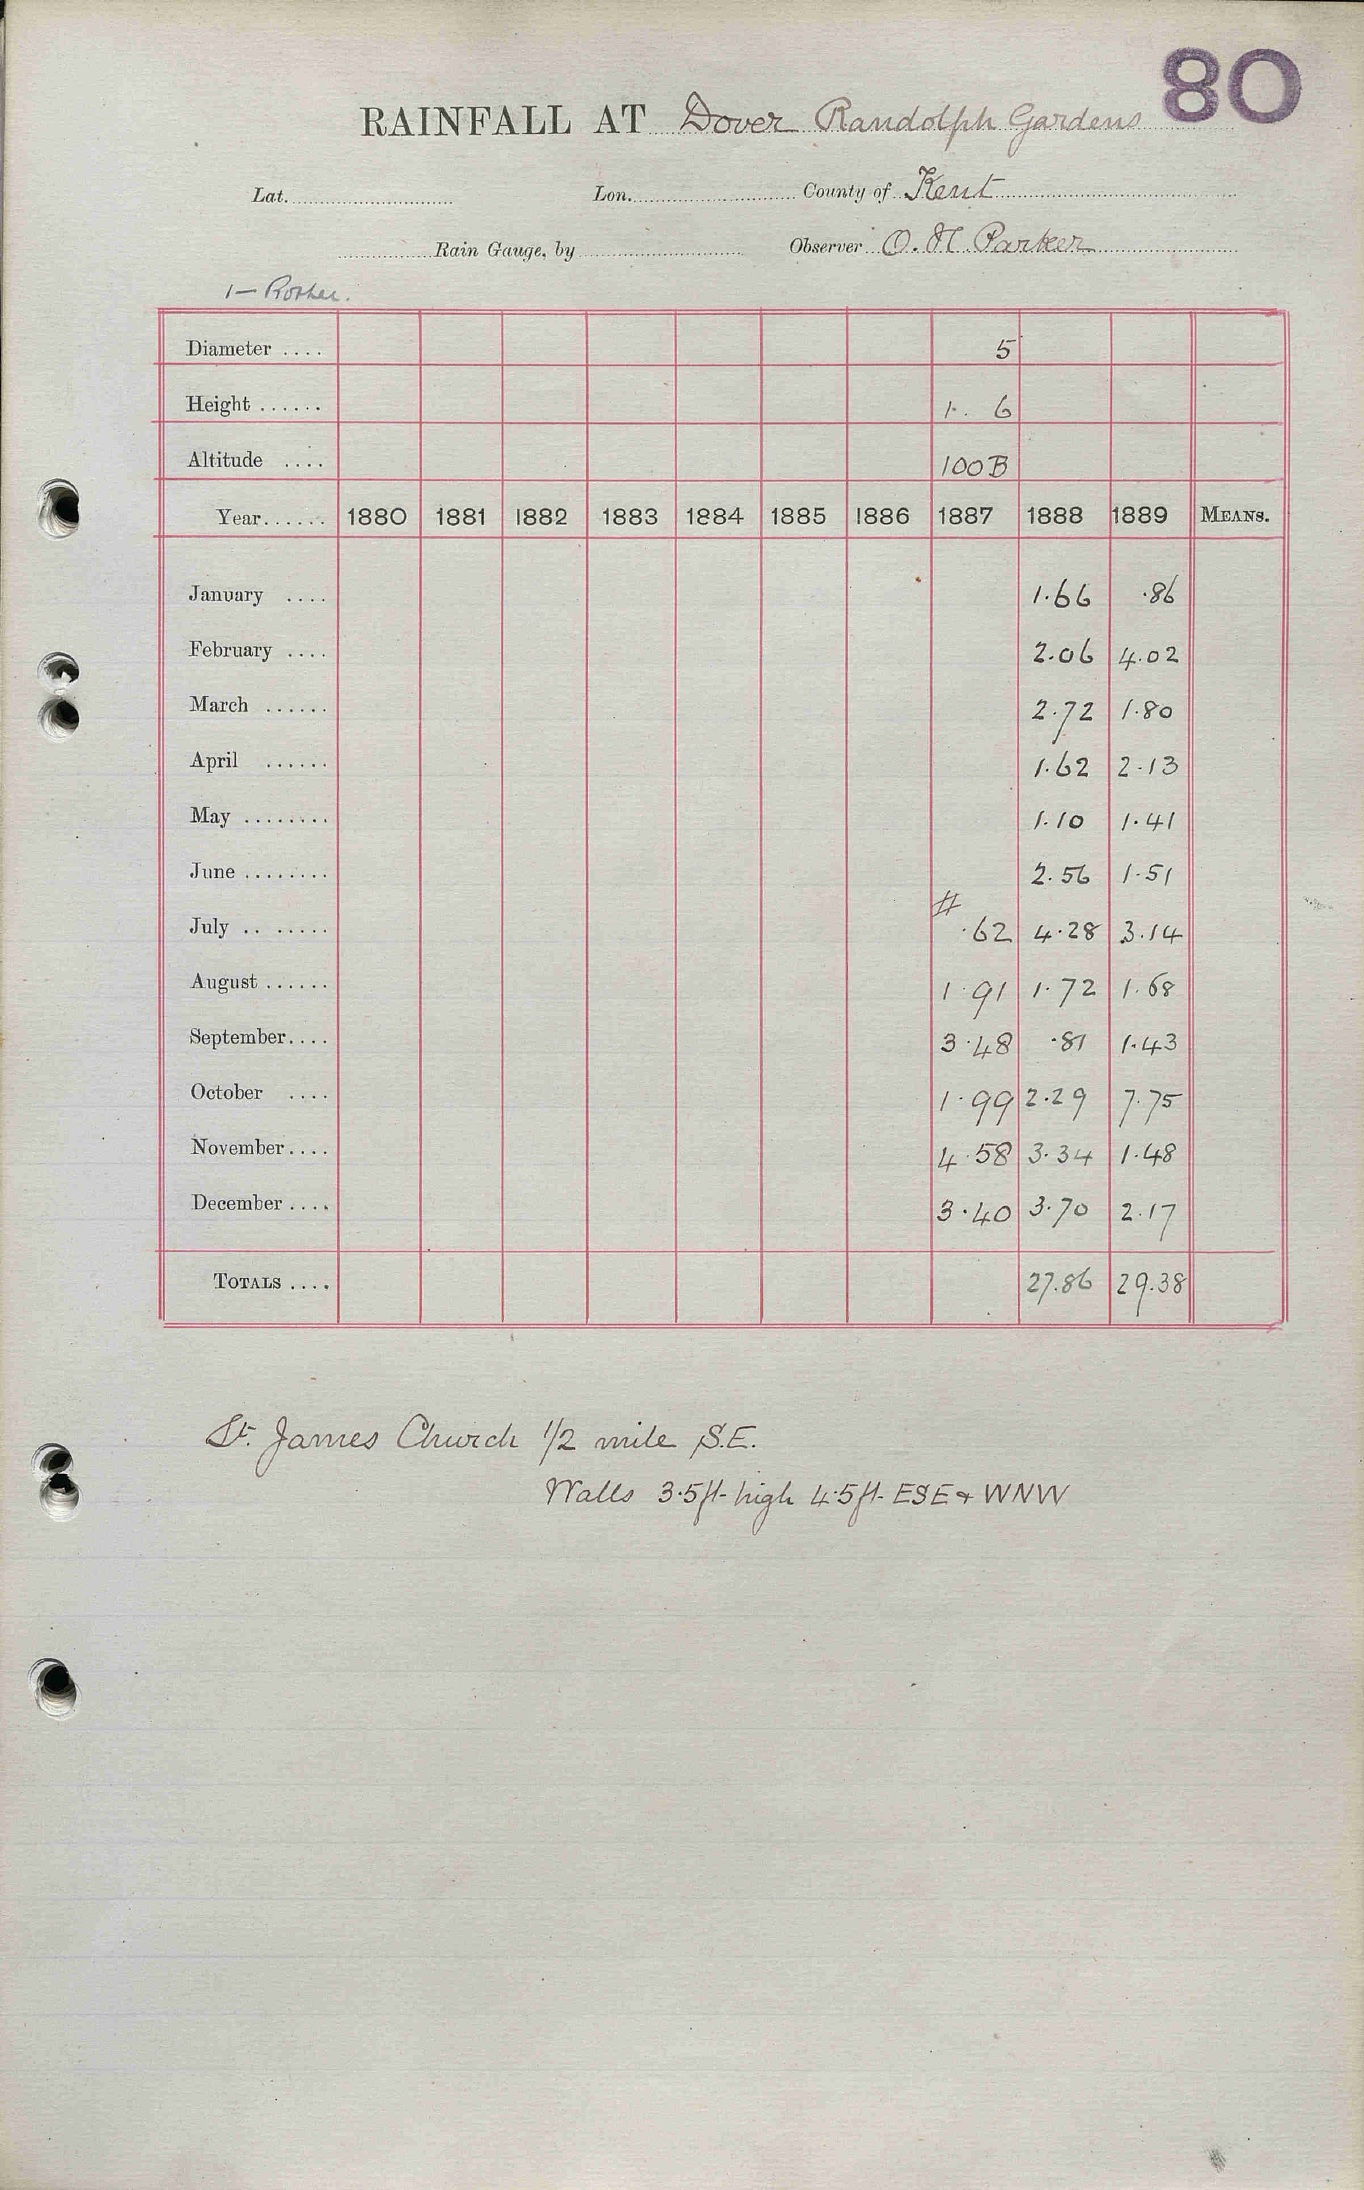 80
RAINFALL AT Dover Randolph Gardens
Lat. Lon. County of Kent
Rain Gauge, by Observer O. H. Parker
1 — Rother.
Diameter .... 5
Height ...... 1. 6
Altitude .... 100 B
Year...... 1880 1881 1882 1883 1884 1885 1886 1887 1888 1889 MEANS.
January .... 1.66 .86
February .... 2.06 4.02
March ...... 2.72 1.80
April ...... 1.62 2.13
May ........ 1.10 1.41
June ........ 2.56 1.51
July .. ..... # .62 4.28 3.14
August ...... 1.91 1.72 1.68
September.... 3.48 .81 1.43
October .... 1.99 2.29 7.75
November.... 4.58 3.34 1.48
December .... 3.40 3.70 2.17
TOTALS .... 27.86 29.38
St. James Church 1/2 mile S.E.
Walls 3.5ft. high 4.5ft. ESE & WNW